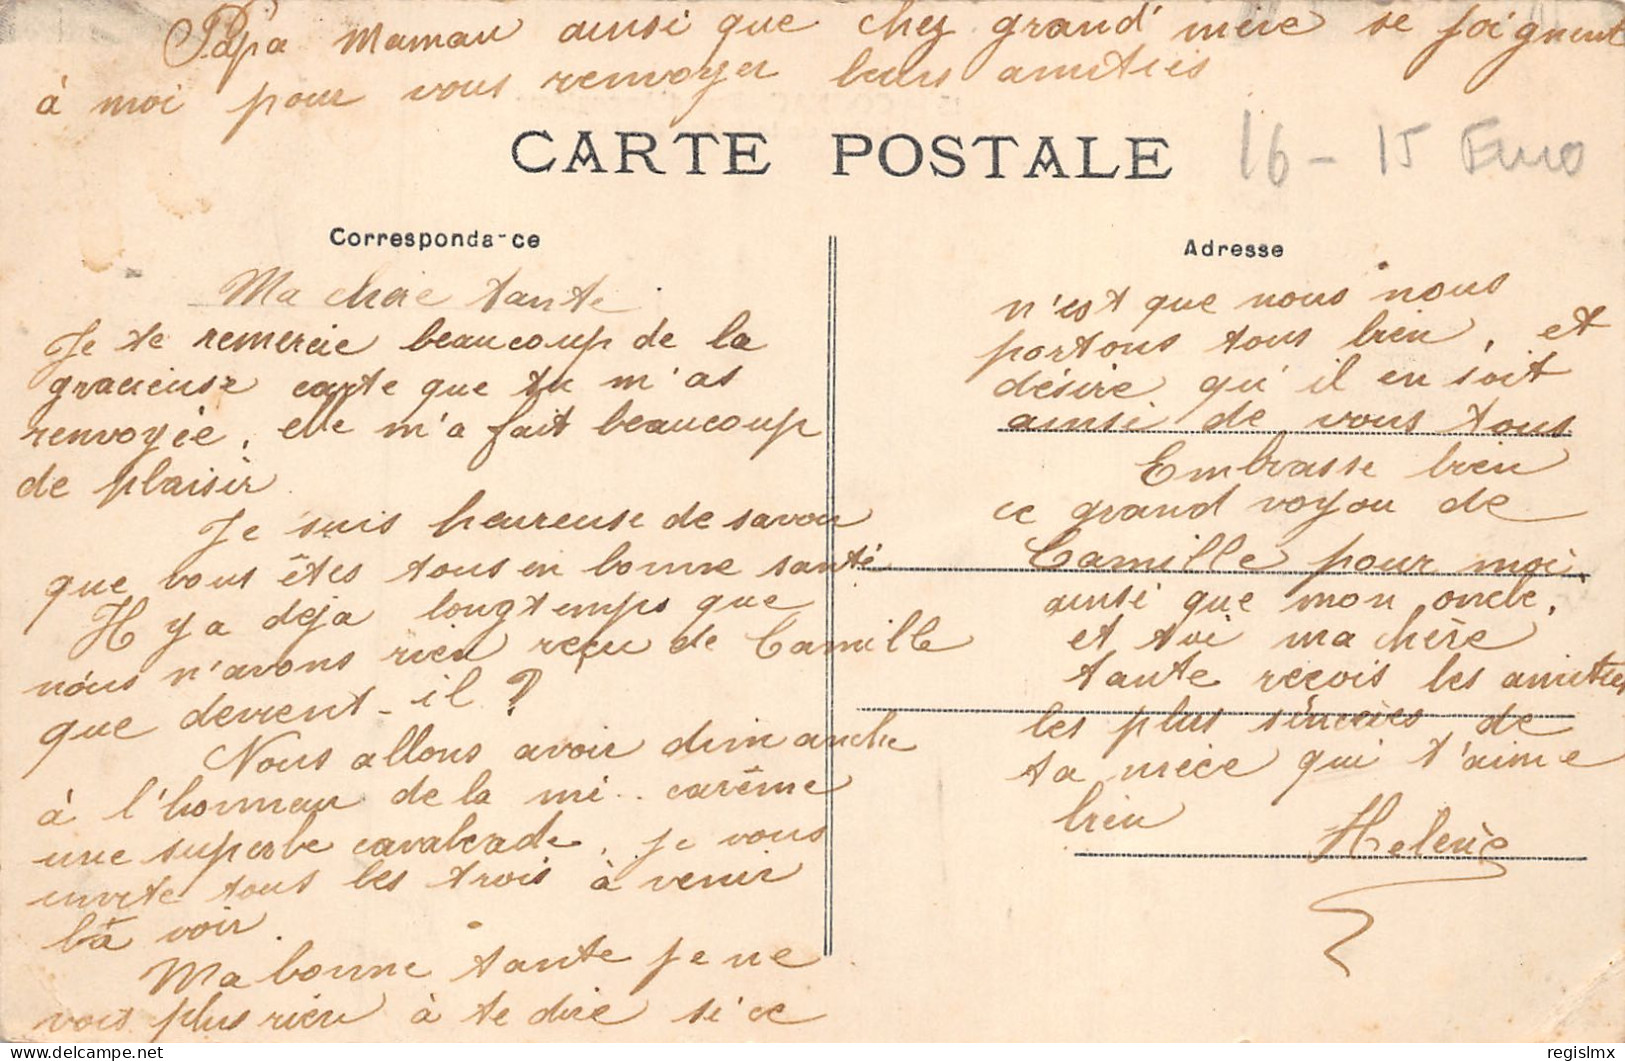 Papa Maman ainsi que chez grand' mère se joignent
à moi pour vous renvoyer leurs amitiés
CARTE POSTALE
16 - 15 Euro
Correspondance
Ma chère tante
Je te remercie beaucoup de la
gracieuse carte que tu m'as
renvoyée, elle m'a fait beaucoup
de plaisir
Je suis heureuse de savoir
que vous êtes tous en bonne santé
Il y a déjà longtemps que
nous n'avons rien reçu de Camille
que devient-il ?
Nous allons avoir dimanche
à l'honneau de la mi-carême
une superbe cavalcade, je vous
invite tous les trois à venir
la voir
Ma bonne tante je ne
vois plus rien à te dire si ce
Adresse
n'est que nous nous
portons tous bien, et
désire qu'il en soit
ainsi de vous tous
Embrasse bien
ce grand voyou de
Camille pour moi,
ainsi que mon oncle,
et toi ma chère
tante reçois les amitiés
les plus sincères de
ta nièce qui t'aime
bien
Helène
delcampe.net
regislmx